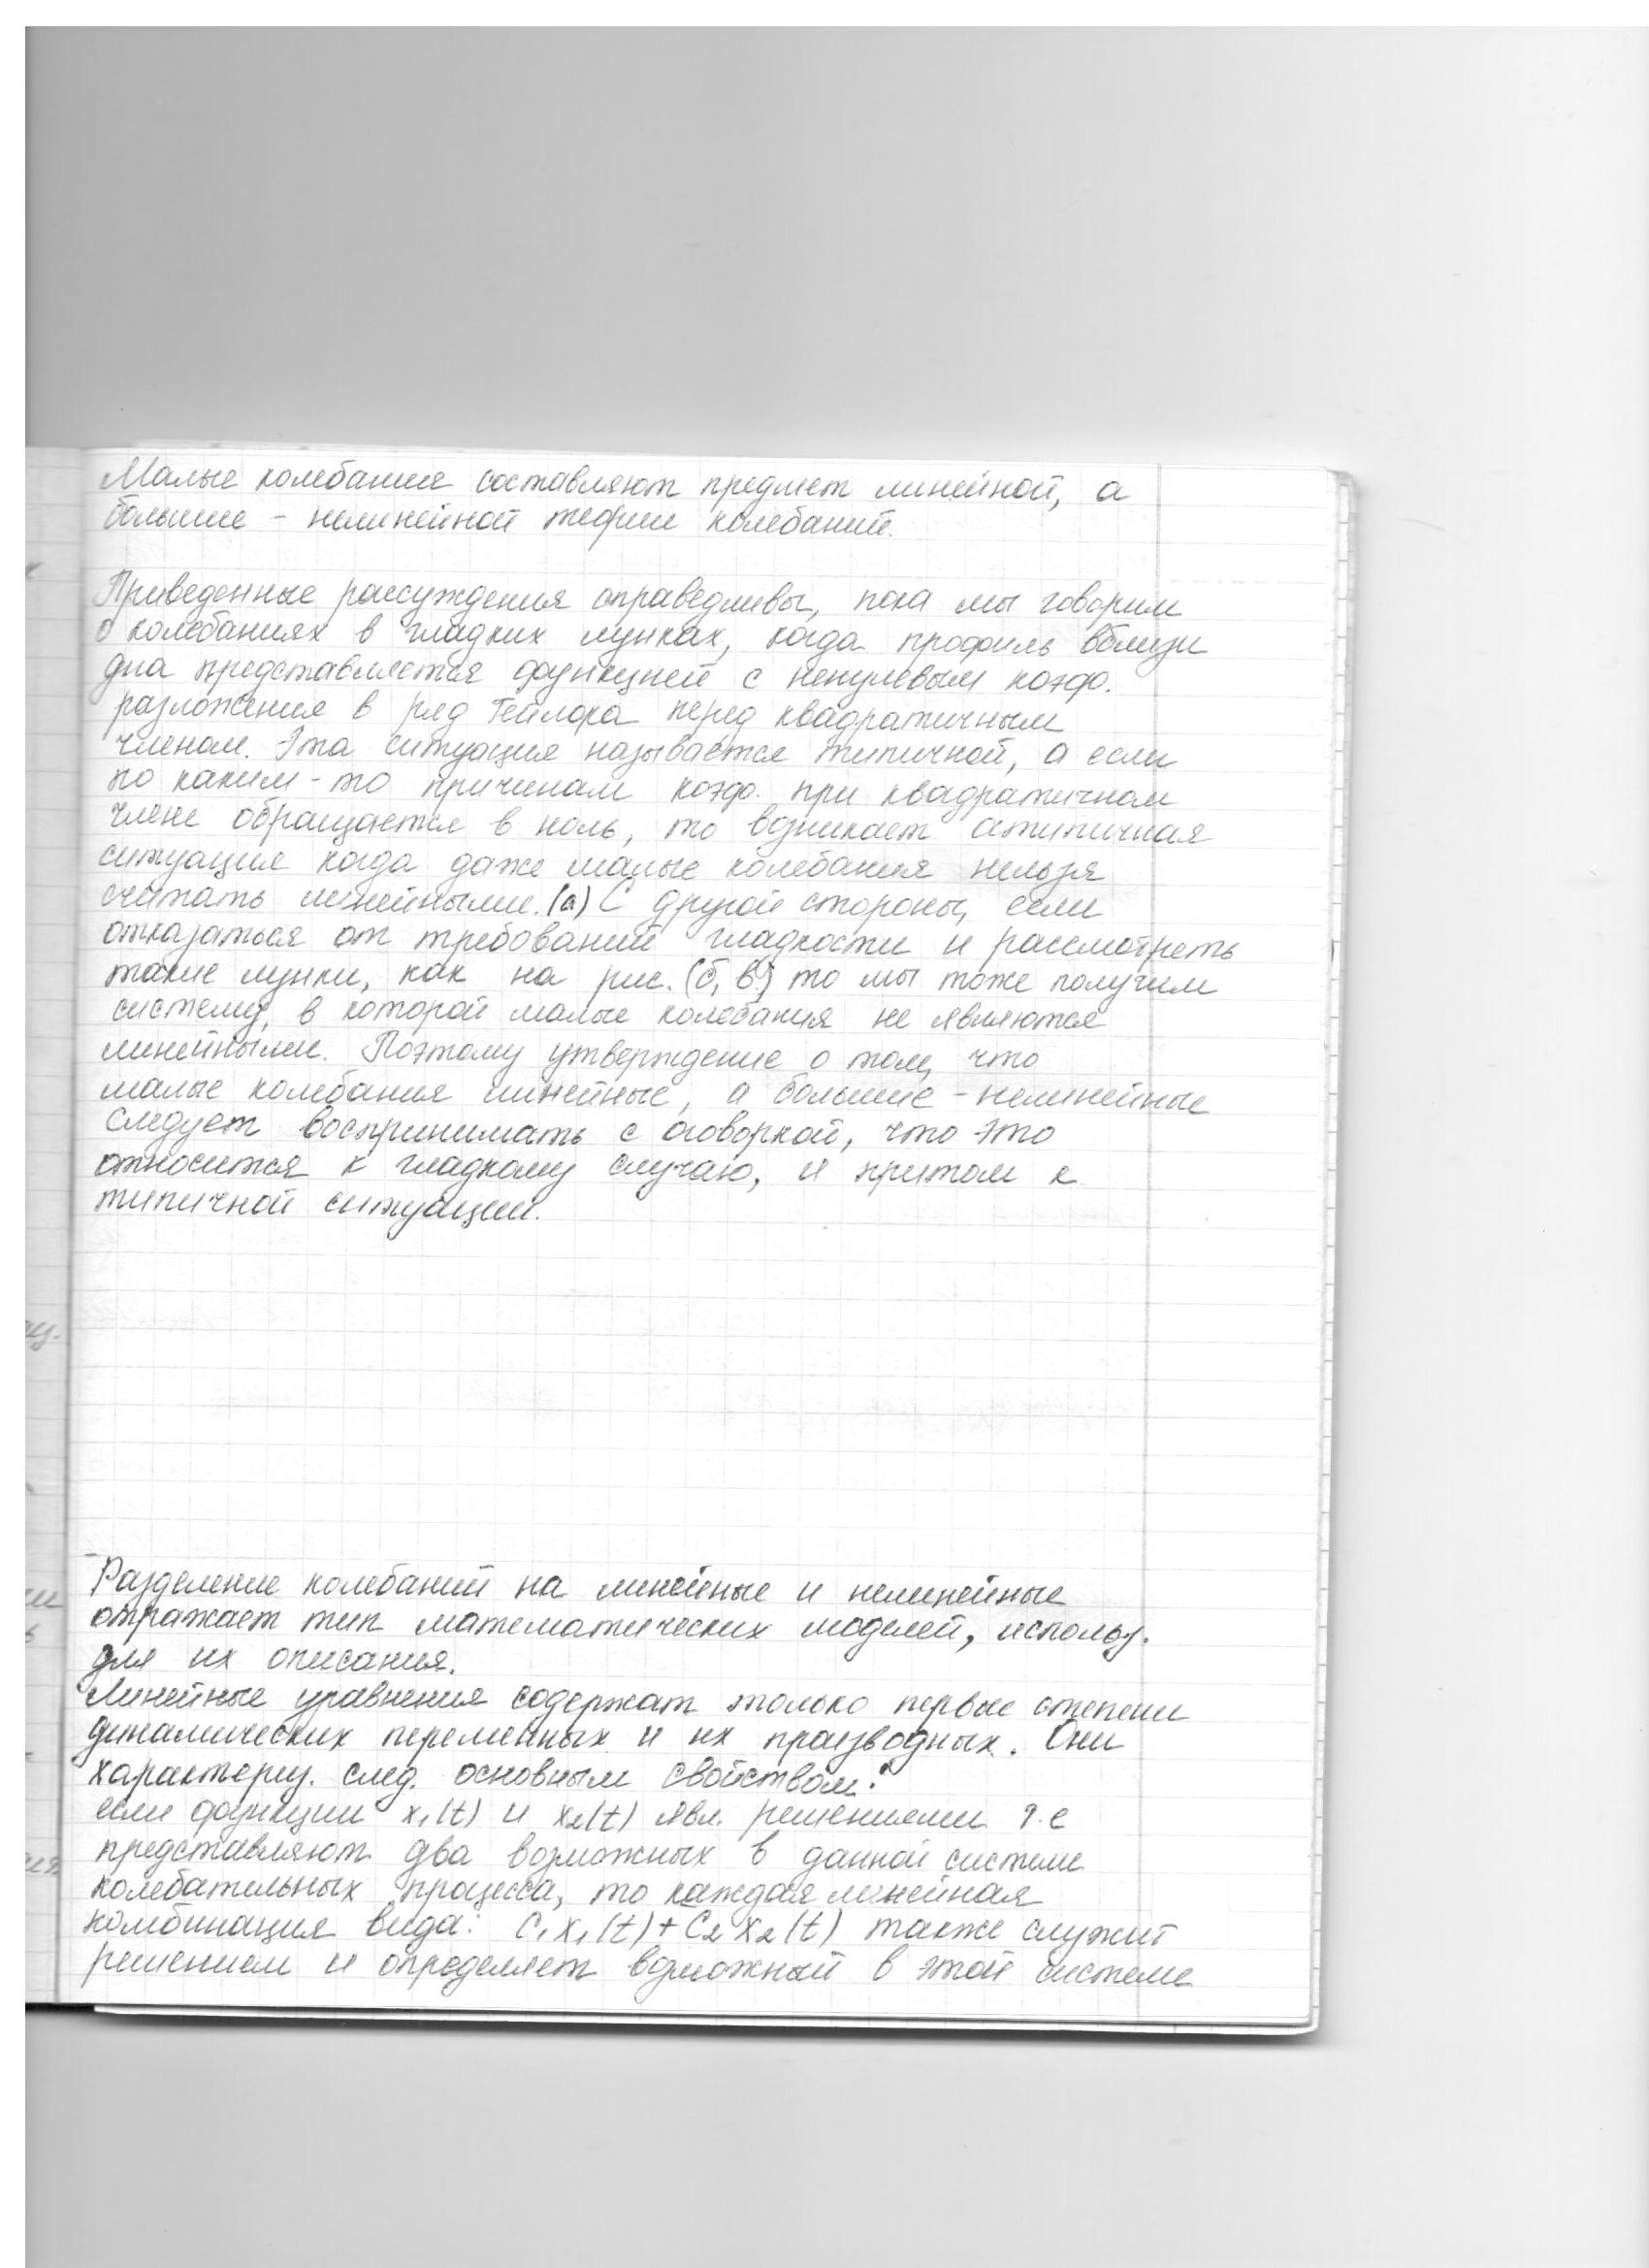 Малые колебания составляют предмет линейной, а
большие - нелинейной теории колебаний.
Приведенные рассуждения справедливы, пока мы говорим
о колебаниях в гладких лунках, когда профиль вблизи
дна представляется функцией с ненулевым коэф.
разложения в ряд Тейлора перед квадратичным
членом. Эта ситуация называется типичной, а если
по каким-то причинам коэф. при квадратичном
члене обращается в ноль, то возникает атипичная
ситуация когда даже малые колебания нельзя
считать линейными. (а) С другой стороны, если
отказаться от требований гладкости и рассмотреть
такие лунки, как на рис. (б, в.) то мы тоже получим
систему, в которой малые колебания не являются
линейными. Поэтому утверждение о том, что
малые колебания линейные, а большие - нелинейные
следует воспринимать с оговоркой, что это
относится к гладкому случаю, и притом к
типичной ситуации.
Разделение колебаний на линейные и нелинейные
отражает тип математических моделей, использ.
для их описания.
Линейные уравнения содержат только первые степени
динамических переменных и их производных. Они
характериз. след. основным свойством:
если функции x₁(t) и x₂(t) явл. решениями т.е
представляют два возможных в данной системе
колебательных процесса, то каждая линейная
комбинация вида: C₁x₁(t) + C₂x₂(t) также служит
решением и определяет возможный в этой системе